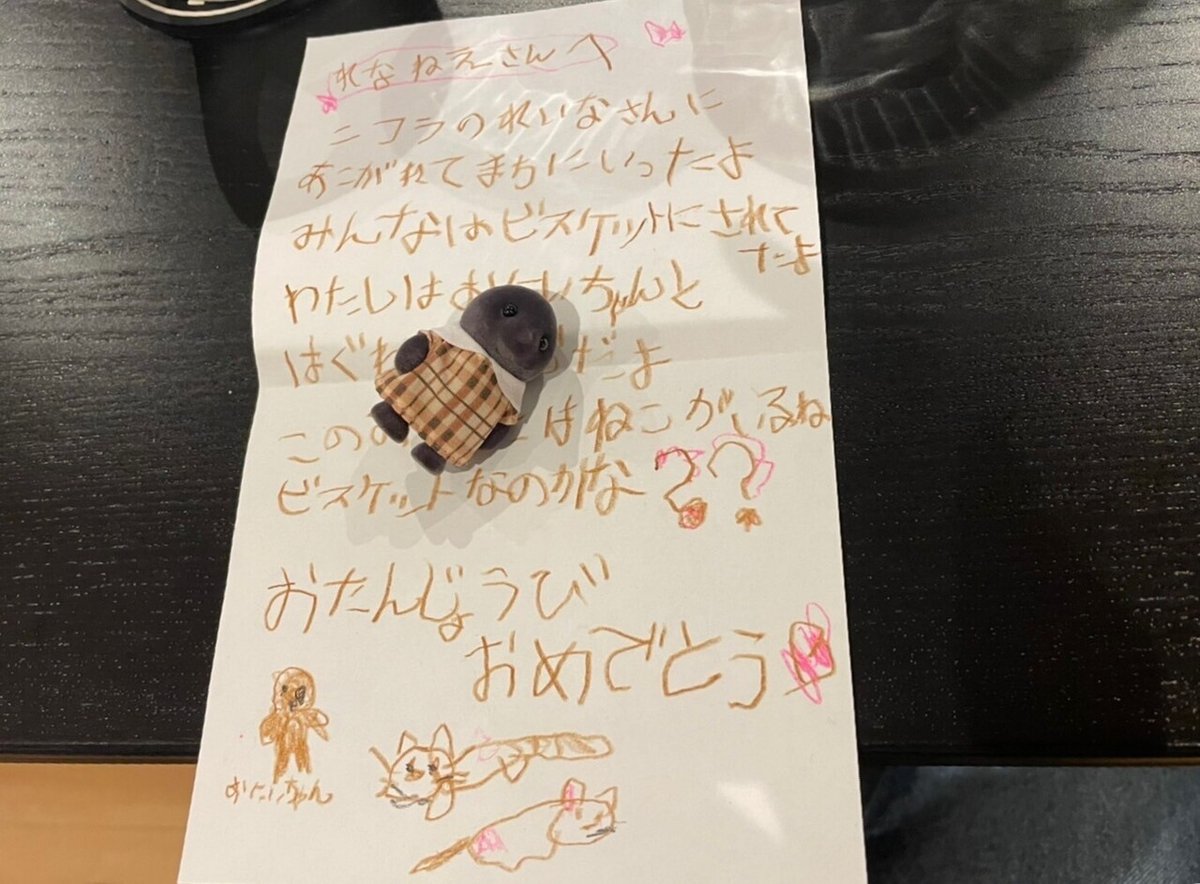 れなねえさんへ
ニコラのれいなさんに
あこがれてまちにいったよ
みんなはビスケットにされて
たよ
わたしはおにいちゃんと
はぐれ だよ
この はねこがいるね
ビスケットなのかな??
おたんじょうび
おめでとう
おにいちゃん